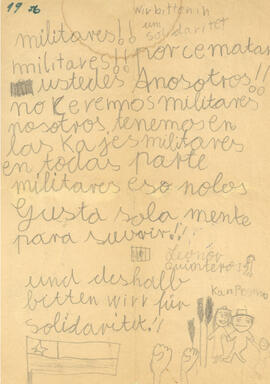 19 76
wir bitten in
um
solidaritet
militares!!
militares!! por ce matar
ustedes Anosotros!!
no Keremos militares
nosotros tenemos en
las Kajes militares
en todas parte
militares eso nolos
Gusta sola mente
para suvrir!!
Leonor
Quinteros
und deshalb
bitten wirr für
solidaritet!!